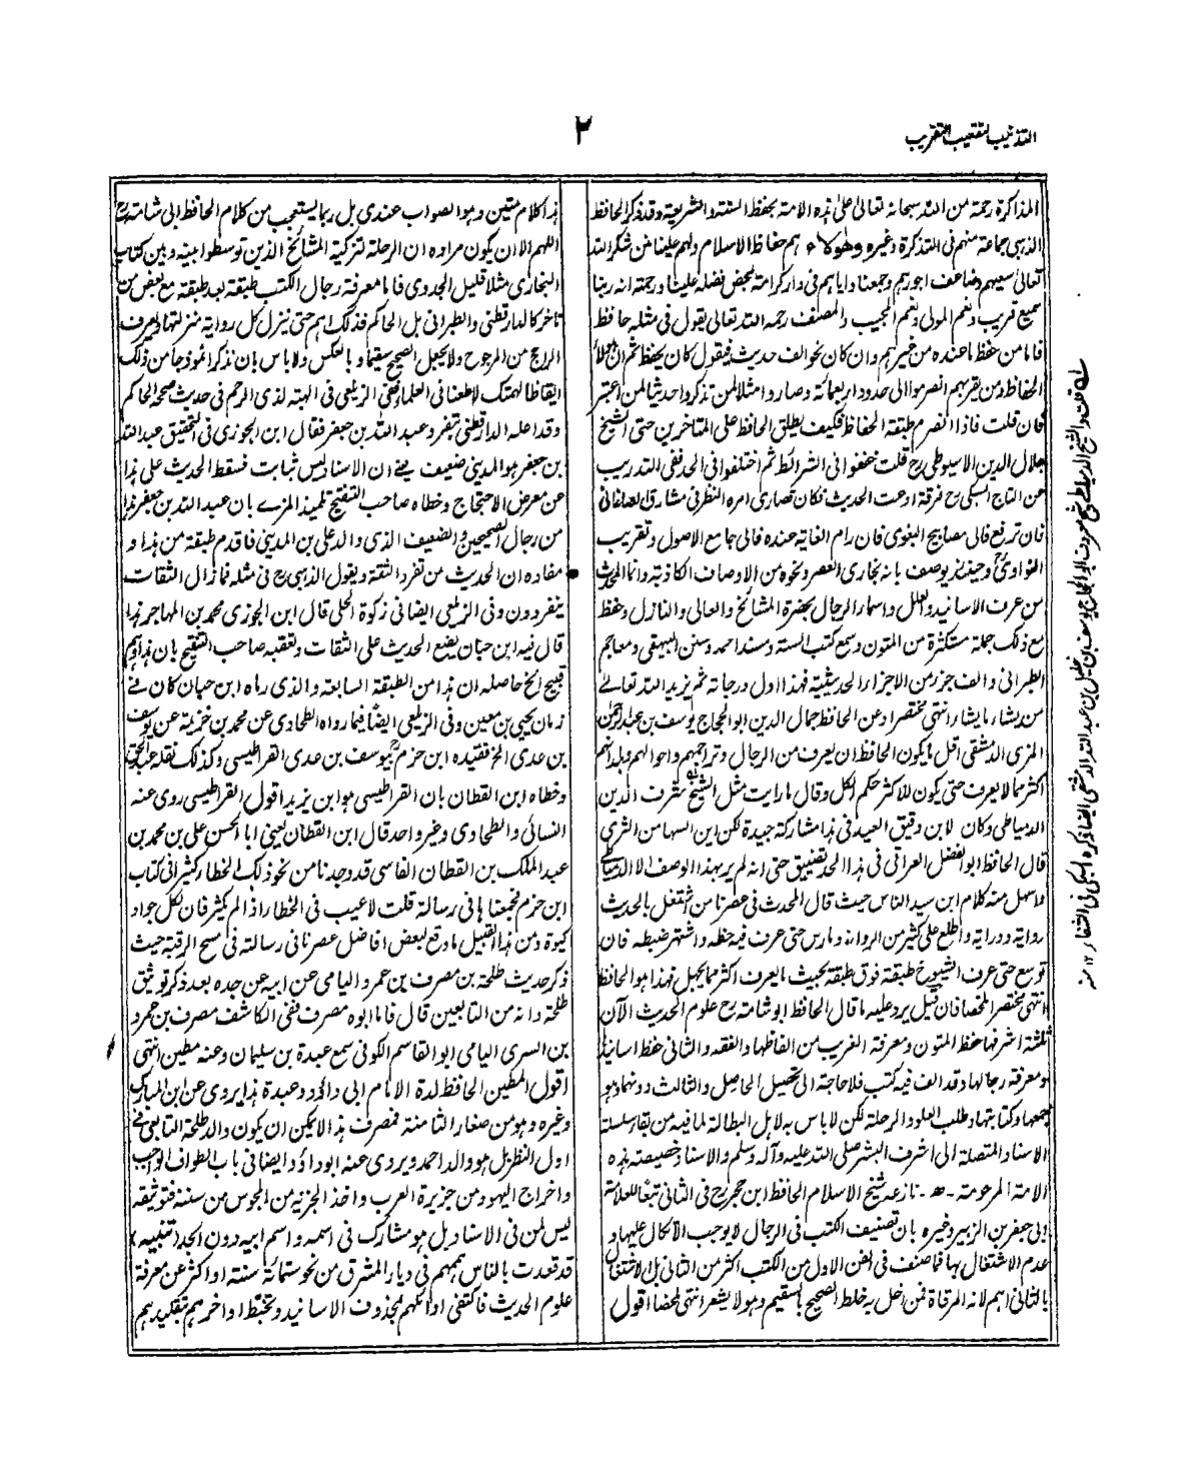 التذنيب لتعقيب التقريب
٢
المذاكرة رحمة من اللہ سبحانہ تعالیٰ علیٰ ہذہ الامۃ بحفظ السنۃ والشریعۃ وقد ذکر الحافظ
الذہبی جماعۃ منہم فی التذکرۃ وغیرہ وھٰولاء ہم حفاظ الاسلام ولہم علینا من شکر اللہ
تعالیٰ سعیہم وضاعف اجورہم وجمعنا وایاہم فی دار کرامتہ بمحض فضلہ علینا ورحمتہ انہ ربنا
سمیع قریب ونعم المولی ونعم المجیب والمصنف رحمہ اللہ تعالیٰ یقول فی مثلہ حافظ
فاما من حفظ ما عندہ من خبرہم وان کان نحو الف حدیث فیقول کان یحفظ ثم ان ہٰولاء
الحفاظ ومن یقربہم انصرموا الی حدود اربعمائۃ وصاروا مثلا لمن تذکر واحدیثا لمن اعتبر
فان قلت فاذا انصرم طبقۃ الحفاظ فکیف یطلق الحافظ علی المتاخرین حتی الشیخ
جلال الدین الاسیوطی رح قلت خففوا فی الشرائط ثم اختلفوا فی الحد ففی التدریب
عن التاج السبکی رح فرقۃ ادعت الحدیث فکان قصاری امرہ النظر فی مشارق الصاغانی
فان ترفع فالی مصابیح البغوی فان رام الغایۃ عندہ فالی جامع الاصول وتقریب
النواوی وحینئذ یوصف بانہ بخاری العصر ونحوہ من الاوصاف الکاذبۃ وانما المحدث
من عرف الاسانید والعلل واسماء الرجال بحضرۃ المشائخ والعالی والنازل وحفظ
مع ذلک جملۃ مستکثرۃ من المتون وسمع کتب الستۃ ومسند احمد وسنن البیہقی ومعاجم
الطبرانی والف جزء من الاجزاء الحدیثیۃ فہذا اول درجاتہ ثم یزید اللہ تعالیٰ
من یشاء ما یشاء انتہی مختصرا وعن الحافظ جمال الدین ابو الحجاج یوسف بن عبد الرحمن
المزی الدمشقی اقل ما یکون الحافظ ان یعرف من الرجال وتراجمہم واحوالہم وبلدانہم
اکثر مما لا یعرف حتی یکون للاکثر حکم الکل وقال ما رایت مثل الشیخ شرف الدین
الدمیاطی وکان لابن دقیق العید فی ہذا مشارکۃ جیدۃ لکن این السہا من الثری
قال الحافظ ابو الفضل العراقی فی ہذا الحد تضییق حتی انہ لم یر بہذا الوصف الا الدمیاطی
واسہل منہ کلام ابن سید الناس حیث قال المحدث فی عصرنا من اشتغل بالحدیث
روایۃ ودرایۃ واطلع علی کثیر من الرواۃ ومارس حتی عرف فیہ حظہ واشتہر ضبطہ فان
توسع حتی عرف الشیوخ طبقۃ فوق طبقۃ بحیث ما یعرف اکثر مما یجہل فہذا ہو الحافظ
انتہی مختصر الملخصا فان قیل یرد علیہ ما قال الحافظ ابو شامۃ رح علوم الحدیث الآن
ثلثۃ اشرفہا حفظ المتون ومعرفۃ الغریب من الفاظہا والفقہ والثانی حفظ اسانیدہا
ومعرفۃ رجالہا وقد الف فیہ کتب فلا حاجۃ الی تحصیل الحاصل والثالث دونہما وہو
جمعہا وکتابتہا وطلب العلو والرحلۃ لکن لا باس بہ لاہل البطالۃ لما فیہ من بقاء سلسلۃ
الاسناد المتصلۃ الی اشرف البشر صلی اللہ علیہ وآلہ وسلم والاسناد خصیصۃ ہذہ
الامۃ المرحومۃ - ھ - نازعہ شیخ الاسلام الحافظ ابن حجر رح فی الثانی تبعًا للعلامۃ
ابی جعفر بن الزبیر وغیرہ بان تصنیف الکتب فی الرجال لا یوجب الاتکال علیہا و
عدم الاشتغال بہا فما صنف فی الفن الاول من الکتب اکثر من الثانی بل الاشتغال
بالثانی اہم لانہ المرقاۃ فمن اخل بہ خلط الصحیح بالسقیم وہو لا یشعر انتہی ملخصا اقول
ہذا کلام متین وہو الصواب عندی بل ربما یستعجب من کلام الحافظ ابی شامۃ رح
اللہم الا ان یکون مرادہ ان الرحلۃ لتزکیۃ المشائخ الذین توسطوا بینہ وبین کتاب
البخاری مثلا قلیل الجدوی فاما معرفۃ رجال الکتب طبقۃ بعد طبقۃ مع بعض من
تاخر کالدارقطنی والطبرانی بل الحاکم فذلک اہم حتی ینزل کل روایۃ منزلتہا ویعرف
الراجح من المرجوح ولا یجعل الصحیح سقیما وبالعکس ولا باس بان نذکر انموذجا من ذلک
ایقاظا لہمتک لا طعنا فی العلماء ففی الزیلعی فی الہبۃ لذی الرحم فی حدیث صححہ الحاکم
وقد اعلہ الدارقطنی بتفرد عبد اللہ بن جعفر فقال ابن الجوزی فی التحقیق عبد اللہ
بن جعفر ہو المدینی ضعیف یعنی ان الاسناد لیس بثابت فسقط الحدیث علی ہذا
عن معرض الاحتجاج وخطاہ صاحب التنقیح تلمیذ المزے بان عبد اللہ بن جعفر ہذا
من رجال الصحیحین والضعیف الذی والد علی بن المدینی فاقدم طبقۃ من ہذا و
مفادہ ان الحدیث من تفرد الثقۃ ویقول الذہبی رح فی مثلہ فما زال الثقات
یتفردون وفی الزیلعی ایضا فی زکوۃ الحلی قال ابن الجوزی محمد بن المہاجر ہذا
قال فیہ ابن حبان یضع الحدیث علی الثقات وتعقبہ صاحب التنقیح بان ہذا وہم
قبیح الخ حاصلہ ان ہذا من الطبقۃ السابعۃ والذی رماہ ابن حبان کان فے
زمان یحیی بن معین وفی الزیلعی ایضًا فیما رواہ الطحاوی عن محمد بن خزیمۃ عن یوسف
بن عدی الخ فقیدہ ابن حزم بیوسف بن عدی القراطیسی وکذلک نقلہ عبد الحق
وخطاہ ابن القطان بان القراطیسی ہو ابن یزید اقول القراطیسی روی عنہ
النسائی والطحاوی وغیر واحد قال ابن القطان یعنی ابا الحسن علی بن محمد بن
عبد الملک بن القطان الفاسی قد وجدنا من نحو ذلک الخطاء کثیرا فی کتاب
ابن حزم فجمعناہا فی رسالۃ قلت لا عیب فی الخطاء اذا لم یکثر فان لکل جواد
کبوۃ ومن ہذا القبیل ما وقع لبعض افاضل عصرنا فی رسالۃ فی مسح الرقبۃ حیث
ذکر حدیث طلحۃ بن مصرف بن عمرو الیامی عن ابیہ عن جدہ بعد ذکر توثیق
طلحۃ وانہ من التابعین قال فاما ابوہ مصرف ففی الکاشف مصرف بن عمرو
بن السری الیامی ابو القاسم الکوفی سمع عبدۃ بن سلیمان وعنہ مطین انتہی
اقول المطین الحافظ لدۃ الامام ابی داؤد وعبدۃ ہذا یروی عن ابن المبارک
وغیرہ وہو من صغار الثامنۃ فمصرف ہذا لا یمکن ان یکون والد طلحۃ التابعی فے
اول النظر بل ہو والد احمد ویروی عنہ ابوداؤد ایضا فی باب الطواف الواجب
واخراج الیہود من جزیرۃ العرب واخذ الجزیۃ من المجوس من سننہ فتوثیقہ
لیس لمن فی الاسناد بل ہو مشارک فی اسمہ واسم ابیہ دون الجد (تنبیہ)
قد قعدت بالناس ہممہم فی دیار المشرق من نحو ستمائۃ سنۃ او اکثر عن معرفۃ
علوم الحدیث فاکتفی اوائلہم بحذف الاسانید وتخبط اواخرہم بتقلیدہم